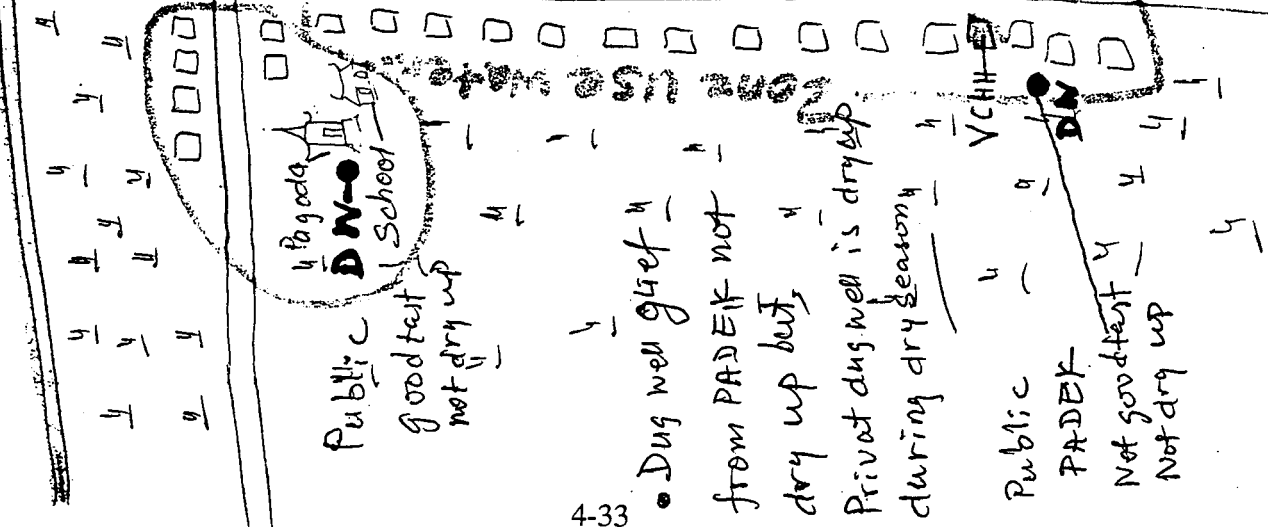 Pagoda
DW
School
Public
good tast
not dry up
Zone use water
• Dug well glief
from PADEK not
dry up but,
Privat dug well is dry up
during dry season
VCHH
DW
Public
PADEK
Not good tast
Not dry up
4-33